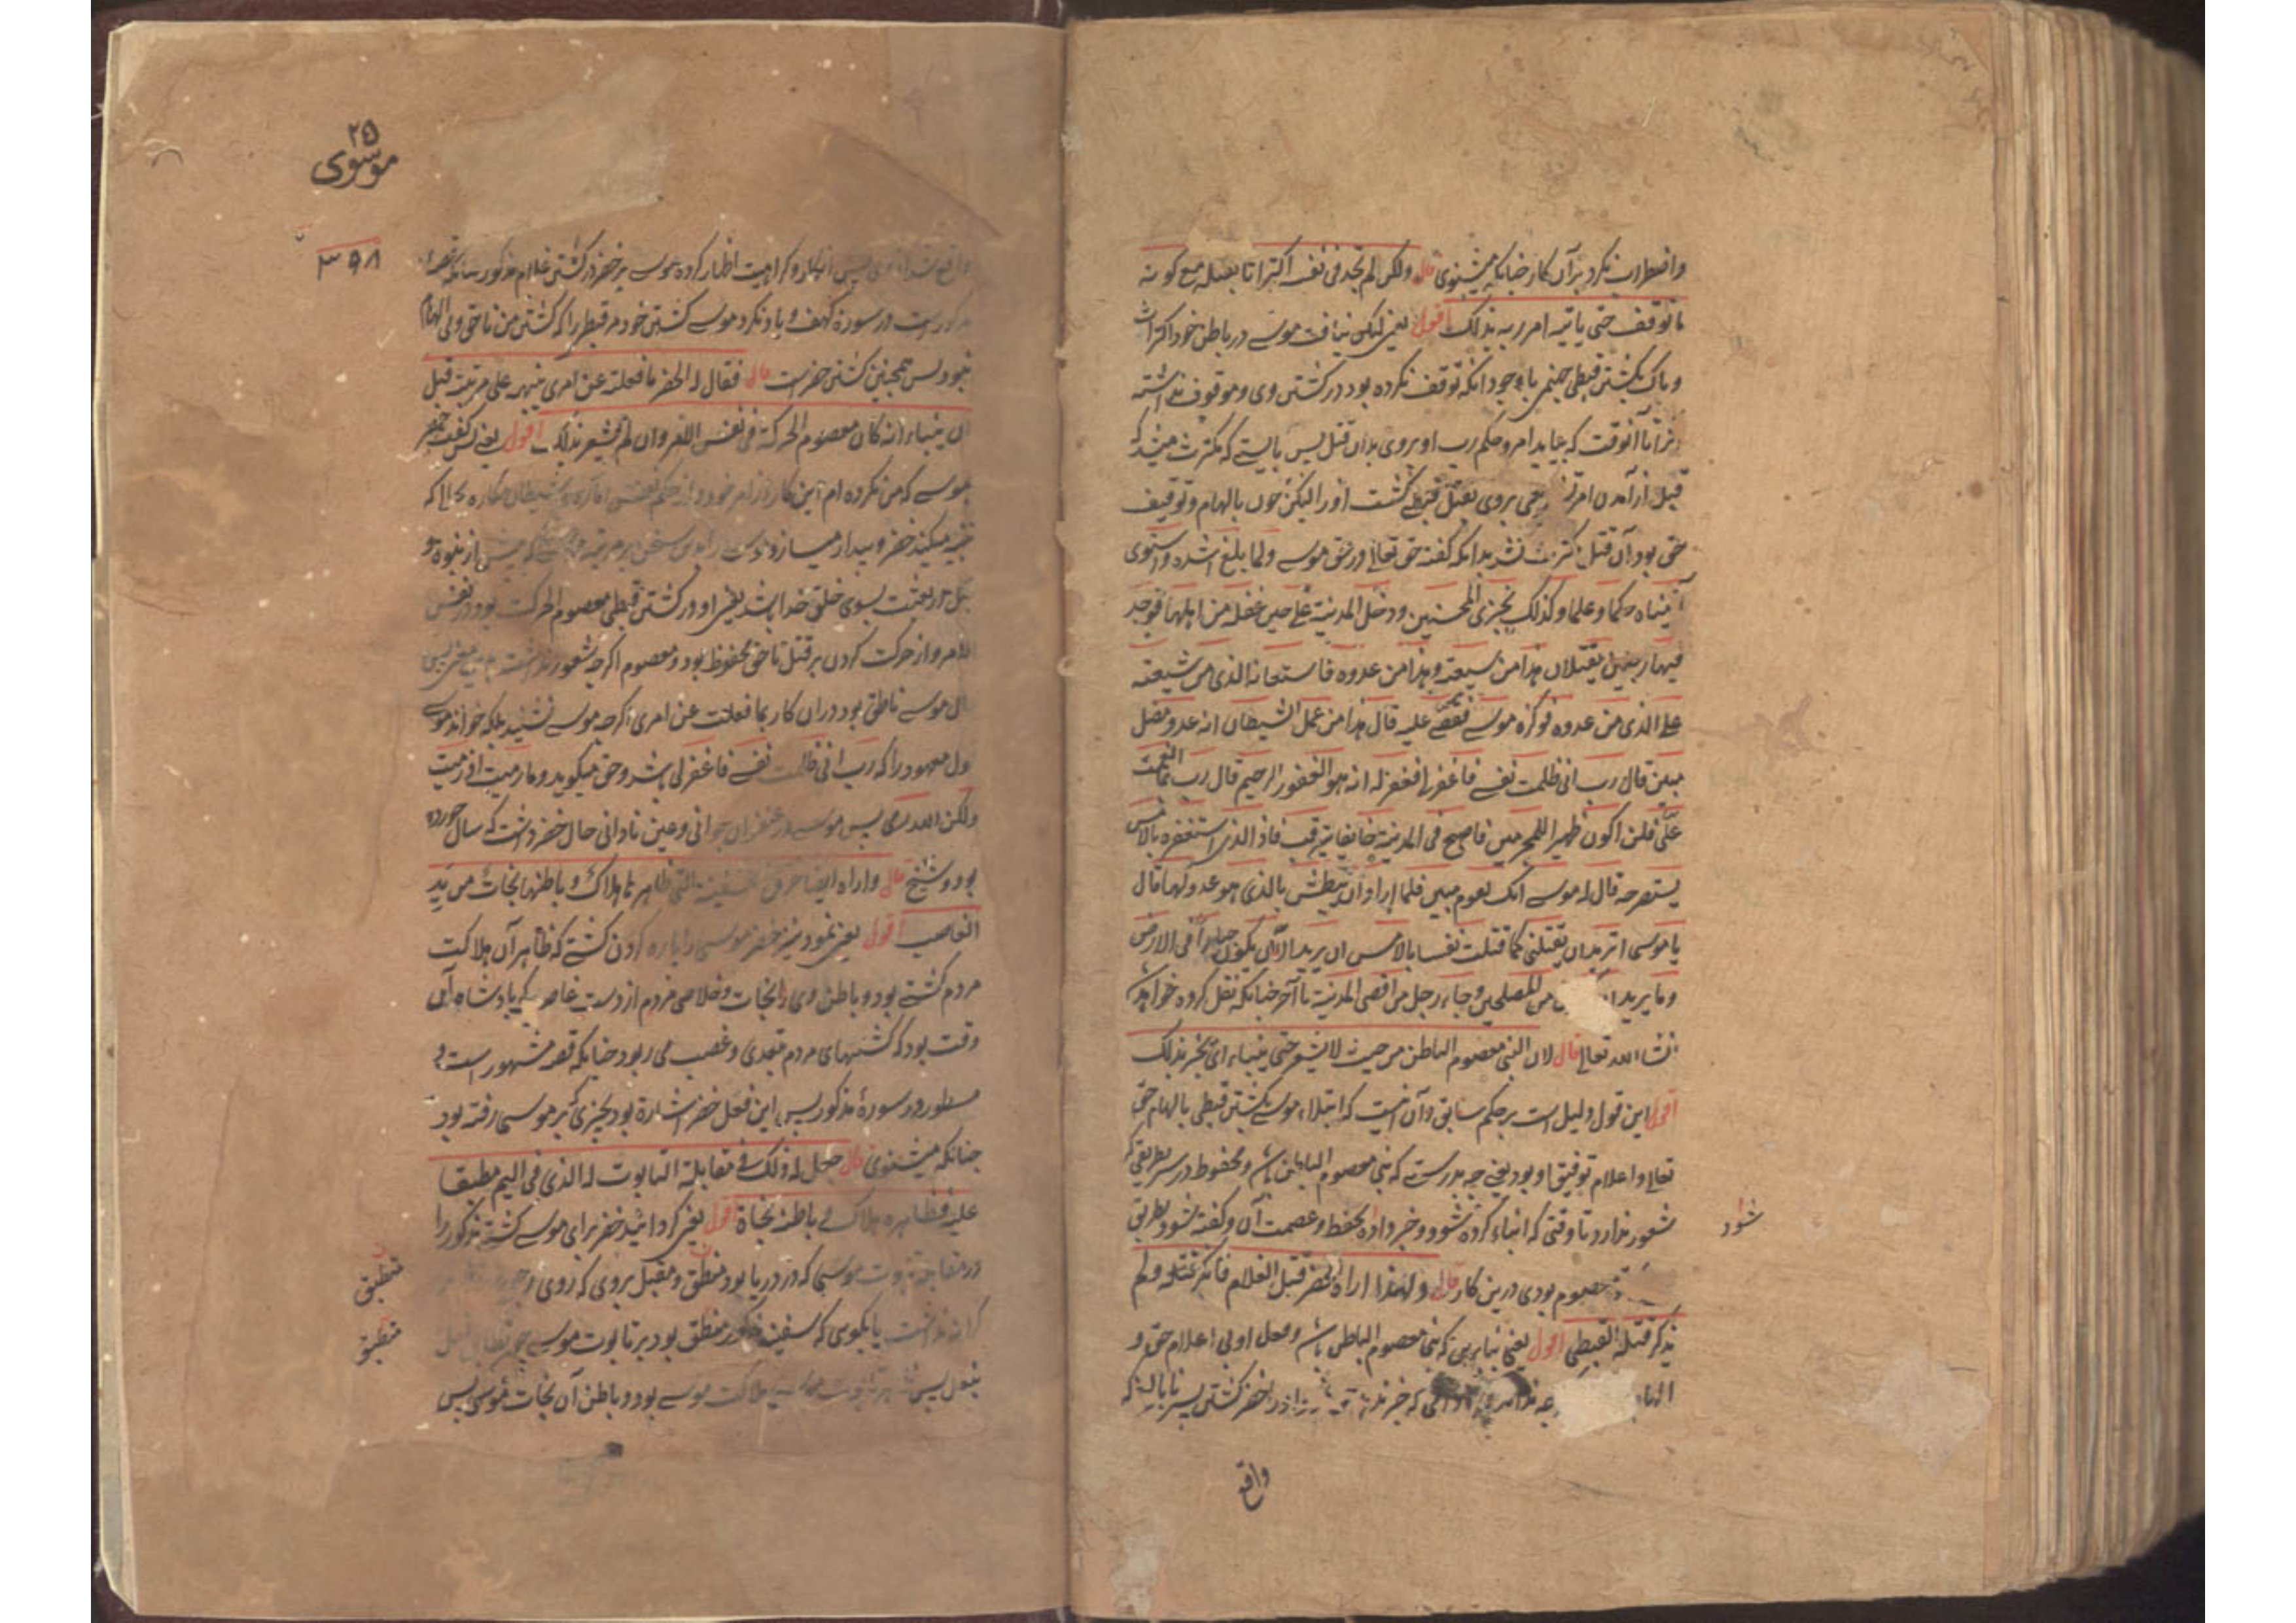 واضطراب نکرد بر آن کار چنانکه میشنوی قال ولکن لم یجد فی نفسه اکتراثا بقتله مع کونه
ما توقف حتی یاتیه امر ربه بذلک اقول یعنی لیکن نیافت موسے در باطن خود اکتراث
و باک بکشتن قبطی جهنمی با وجود آنکه توقف نکرده بود در کشتن وی و موقوف نداشته
تا آنوقت که بیاید امر و حکم رب او بروی بدان قتل پس بایستے که مکترث میشد که
قبل از آمدن امر وحی بروی بقتل قبطے کشت او را لیکن چون بالهام و توقیف
حق بود آن قتل مکترث نشد بدانکه گفته حق تعالے در حق موسے ولما بلغ اشده واستوی
آتیناه حکما وعلما وکذلک نجزی المحسنین ودخل المدینة علے حین غفلة من اهلها فوجد
فیها رجلین یقتتلان هذا من شیعته وهذا من عدوه فاستغاثه الذی من شیعته
علے الذی من عدوه فوکزه موسے فقضے علیه قال هذا من عمل الشیطان انه عدو مضل
مبین قال رب انی ظلمت نفسے فاغفرلے فغفر له انه هو الغفور الرحیم قال رب بما انعمت
علی فلن اکون ظهیرا للمجرمین فاصبح فی المدینة خایفا یترقب فاذا الذی استنصره بالامس
یستصرخه قال له موسے انک لغوی مبین فلما اراد ان یبطش بالذی هو عدو لهما قال
یا موسی اترید ان تقتلنی کما قتلت نفسا بالامس ان ترید الا ان تکون جبارا فی الارض
وما ترید من المصلحین وجاء رجل من اقصی المدینة تا آخر چنانکه نقل کرده خواهد شد
انشاء الله تعالے قال لان النبی معصوم الباطن من حیث لا یشعر حتی ینباء ای یخبر بذلک
اقول این قول دلیل است بر حکم سابق و آن اینست که ابتلاء موسے بکشتن قبطی بالهام حق
تعالے و اعلام توفیق او بود یعنی چه بدرستے که نبی معصوم الباطن باشد و محفوظ در سر بطریقے که
شعور ندارد تا وقتی که انباء کرده نشود و خبر داده بحفظ و عصمت آن و گفته نشود بطریق
شود
معصوم بودی درین کار قال ولهذا اراه الخضر قتل الغلام فانکر قتله ولم
یذکر قتله القبطی اقول یعنی بنابرین که نبی معصوم الباطن باشد و محل اولی اعلام حق و
خضر کشتن پسر نابالغ که
واقع
۲۵
موسوی
۳۹۸
پس انکار و کراهیت اظهار کرده موسے بر خضر در کشتن غلام مذکور چنانکه قصه آن
مذکورست در سورة کهف و یاد نکرد موسے کشتن خود مر قبطی را که کشتن من ناحق و بی الهام
نبود پس همچنین کشتن خضرست قال فقال له الخضر ما فعلته عن امری ینبهه علی مرتبته قبل
ان ینباء انه کان معصوم الحرکة فی نفس الامر وان لم یشعر بذلک اقول یعنی پس گفت خضر
بموسے که من نکرده ام این کار از امر خود و از حکم نفس اماره و شیطان مکاره بحالے که
تنبیه میکند خضر و بیدار میسازد موسے را بدین سخن بر مرتبه پیش از نبوة و
قبل از بعثت بسوی خلق خدا باشد یعنی او در کشتن قبطی معصوم الحرکت بود در نفس
الامر و از حرکت کردن بر قتل ناحق محفوظ بود و معصوم اگرچه شعور نداشت باین معنی پس
حال موسے ناطق بود در آن کار بما فعلت عن امری اگرچه موسے نشنید بلکه خواند موسے
قول معهود را که رب انی ظلمت نفسے فاغفرلی باشد و حق میگوید وما رمیت اذ رمیت
ولکن الله رمی پس موسے در عنفوان جوانی و عین نادانی حال خضر داشت که سال خورده
بود و شیخ قال واراه ایضا خرق السفینة التی ظاهرها هلاک وباطنها نجات من ید
الغاصب اقول یعنی نمود نیز خضر موسی را پاره کردن کشتے که ظاهر آن هلاکت
مردم کشتے بود و باطن وی نجات و خلاصی مردم از دست غاصبے که پادشاه آن
وقت بود که کشتیهای مردم بتعدی و غصب می ربود چنانکه قصه مشهور است و
مسطور در سورۀ مذکور پس این فعل خضر اشارة بود بچیزی که بر موسی رفته بود
چنانکه میشنوی قال جعل له ذلک فی مقابلة التابوت له الذی فی الیم مطبقا
علیه فظاهره هلاک و باطنه نجاة اقول یعنی گردانید خضر برای موسے کشتے مذکور را
در مقابله تابوت موسی که در دریا بود منطبق و مقبل بروی که روی
منطبق
یا بگوی که سفینه مذکور منطبق بود بر تابوت موسے
منطبق
هلاکت موسے بود و باطن آن نجات موسی پس